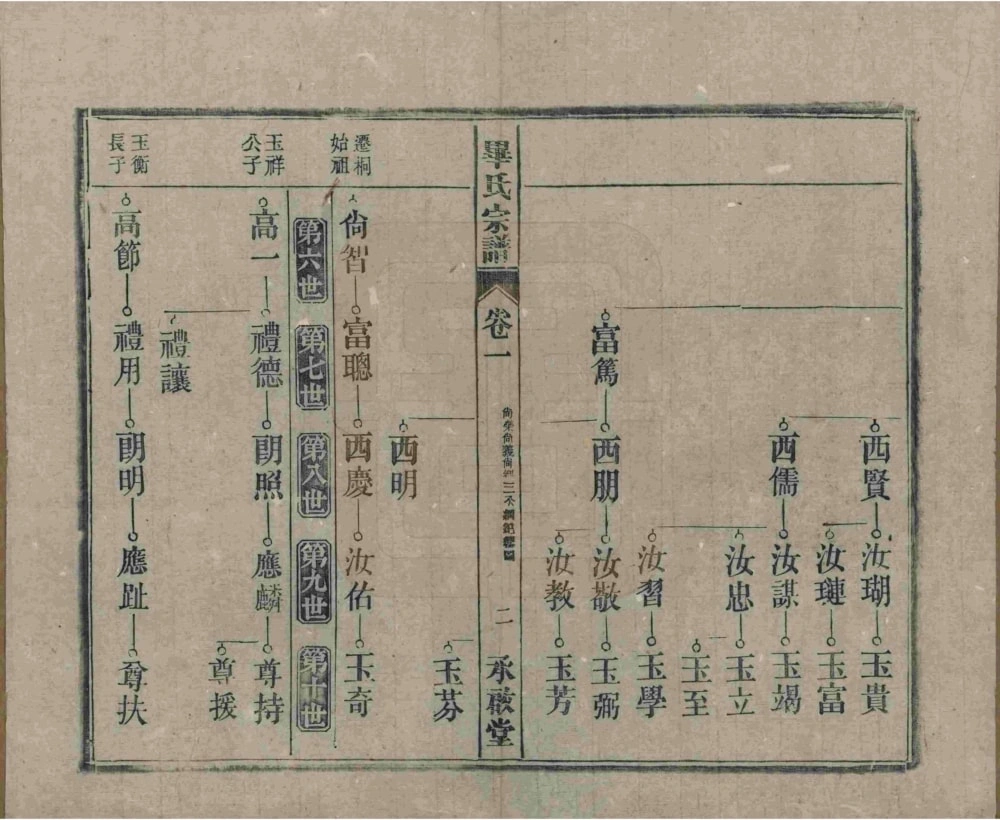 西賢
汝瑚
玉貴
汝璉
玉富
西儒
汝謀
玉竭
汝忠
玉立
玉至
汝習
玉學
富篤
西朋
汝敬
玉弼
汝教
玉芳
畢氏宗譜
卷一
二
承啟堂
玉芬
西明
遷桐
始祖
尙智
富聰
西慶
汝佑
玉奇
第六世
第七世
第八世
第九世
第十世
玉祥
公子
高一
禮德
朗照
應麟
尊持
尊援
禮讓
玉衡
長子
高節
禮用
朗明
應趾
尊扶